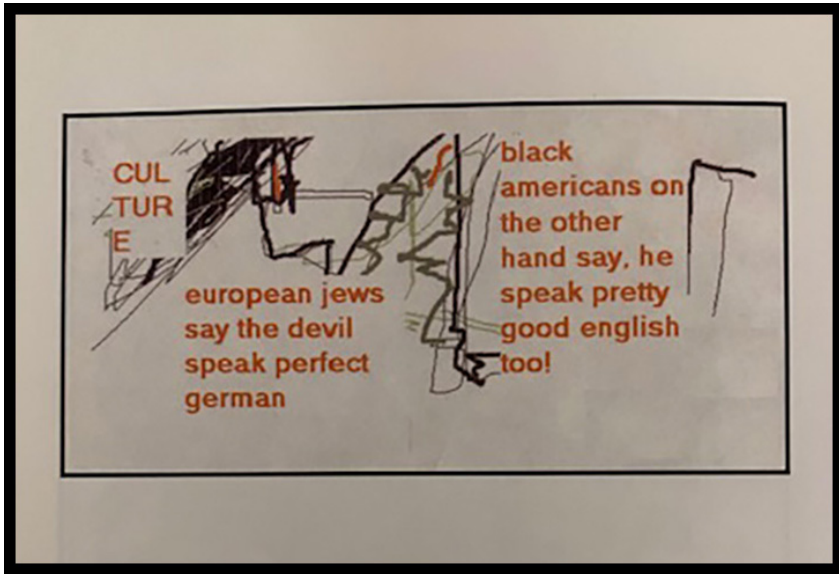 CUL
TUR
E
european jews
say the devil
speak perfect
german
black
americans on
the other
hand say, he
speak pretty
good english
too!